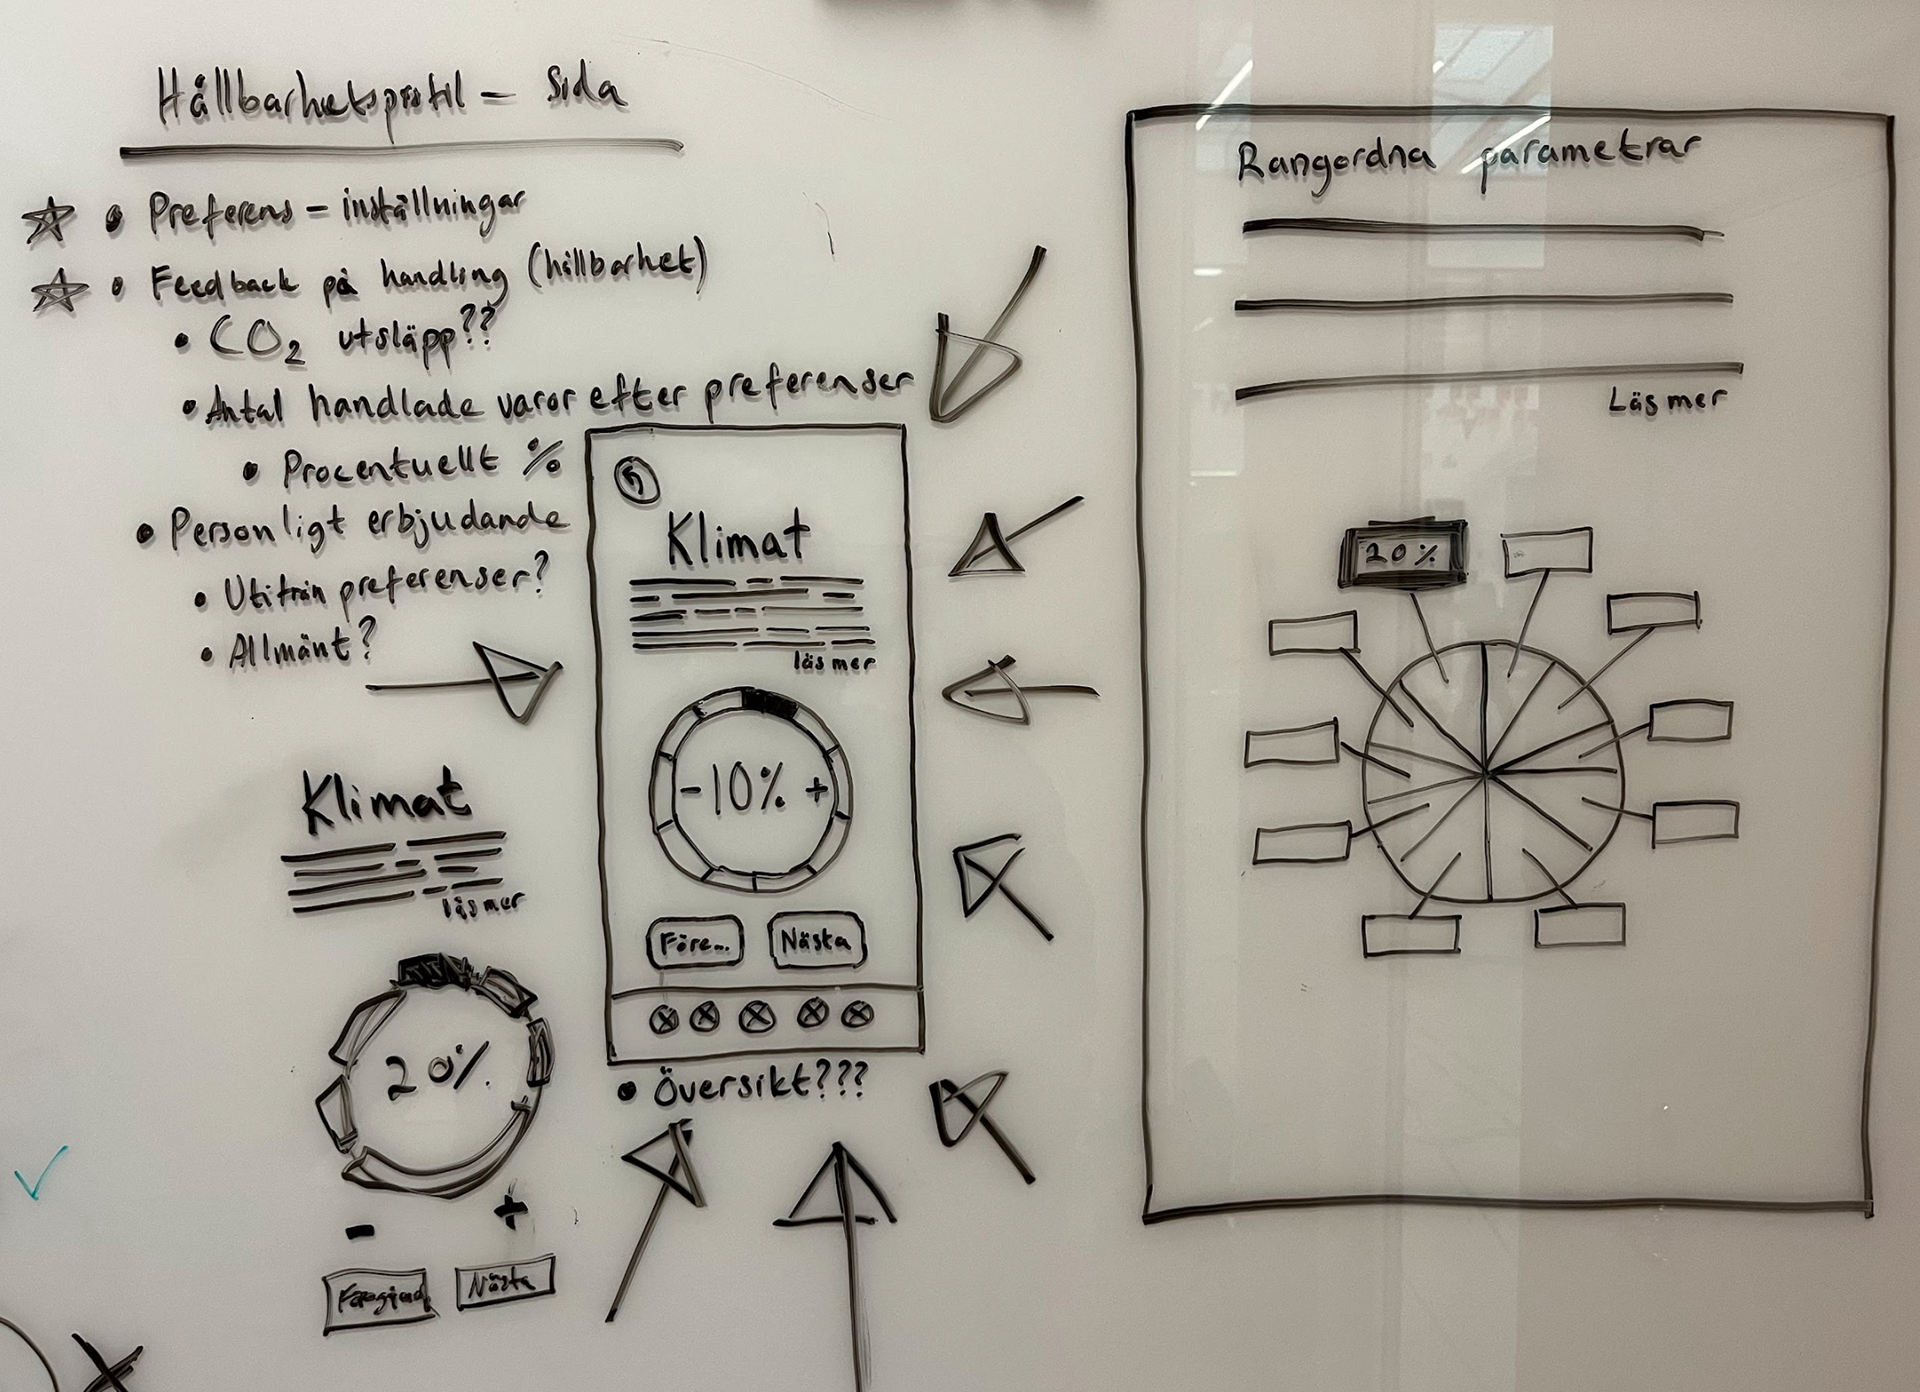 Hållbarhetsprofil - Sida
• Preferens - inställningar
• Feedback på handling (hållbarhet)
• CO2 utsläpp??
• Antal handlade varor efter preferenser
• Procentuellt %
• Personligt erbjudande
• Utifrån preferenser?
• Allmänt?
Klimat
läs mer
20%
- +
Nästa
Klimat
läs mer
- 10% +
Före...
Nästa
• Översikt???
Rangordna parametrar
Läs mer
20%